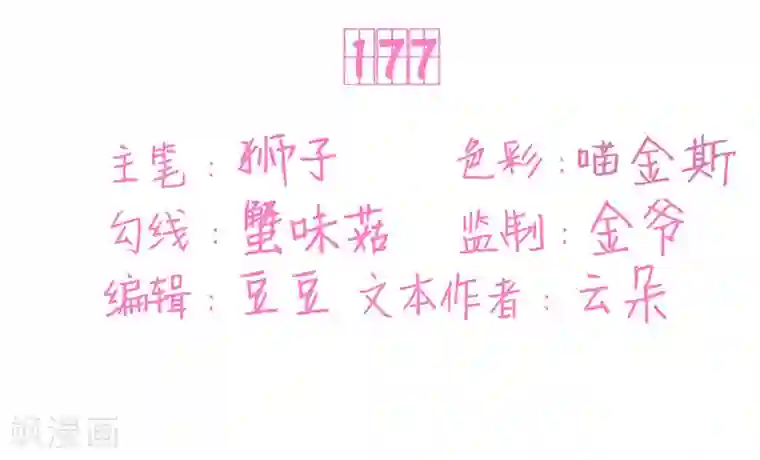 177
主笔：狮子 色彩：喵金斯
勾线：蟹味菇 监制：金爷
编辑：豆豆 文本作者：云朵
飒漫画